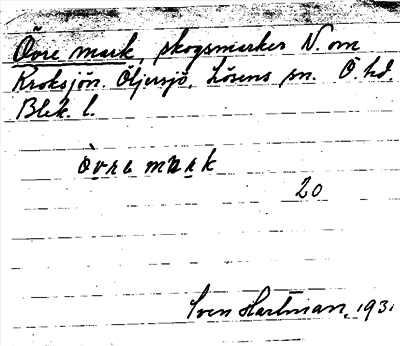 Övre mark, skogsmarker N. om
Kroksjön. Öljersjö, Lösens sn. Ö. hd.
Blek. l.
òvre mark
20
Sven Hartman, 1931